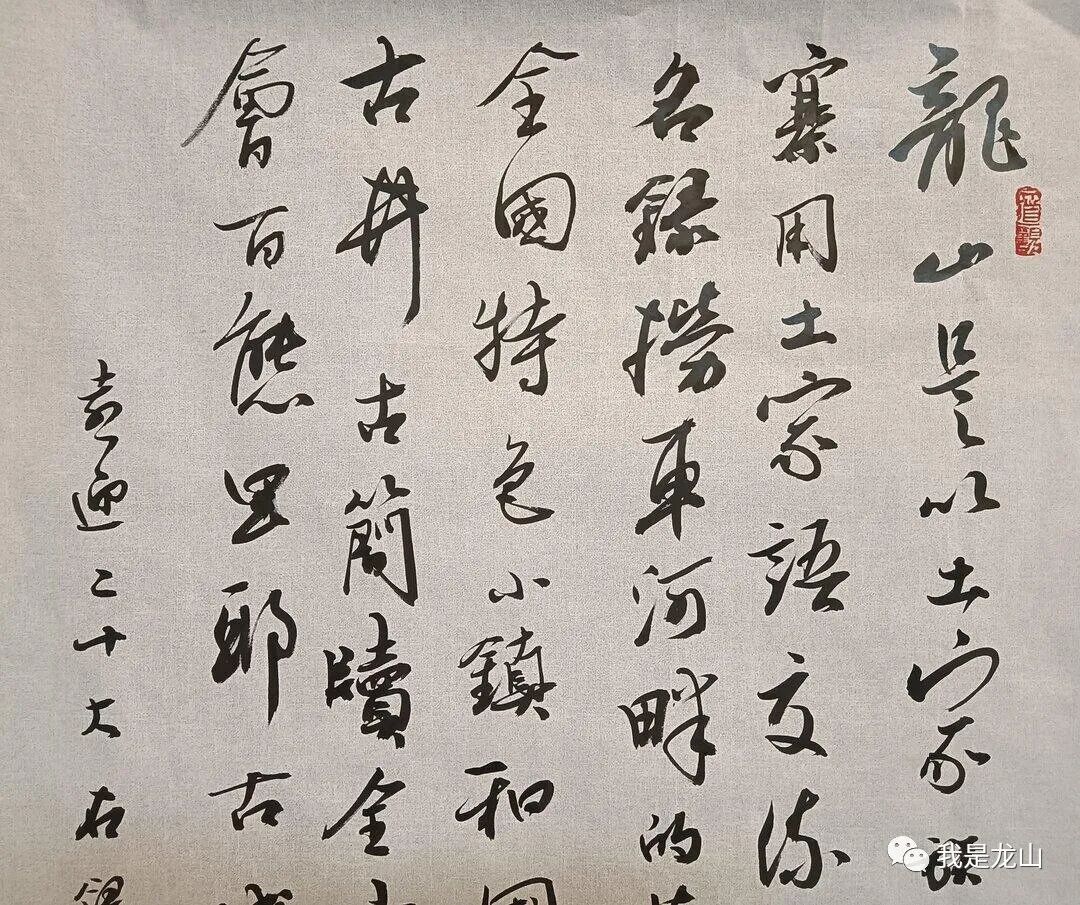 龍山是以土家
寨用土家語交流
名錄撈車河畔的
全國特色小鎮和
古井古簡牘全
會百態里耶古
喜迎二十大右錄
我是龙山